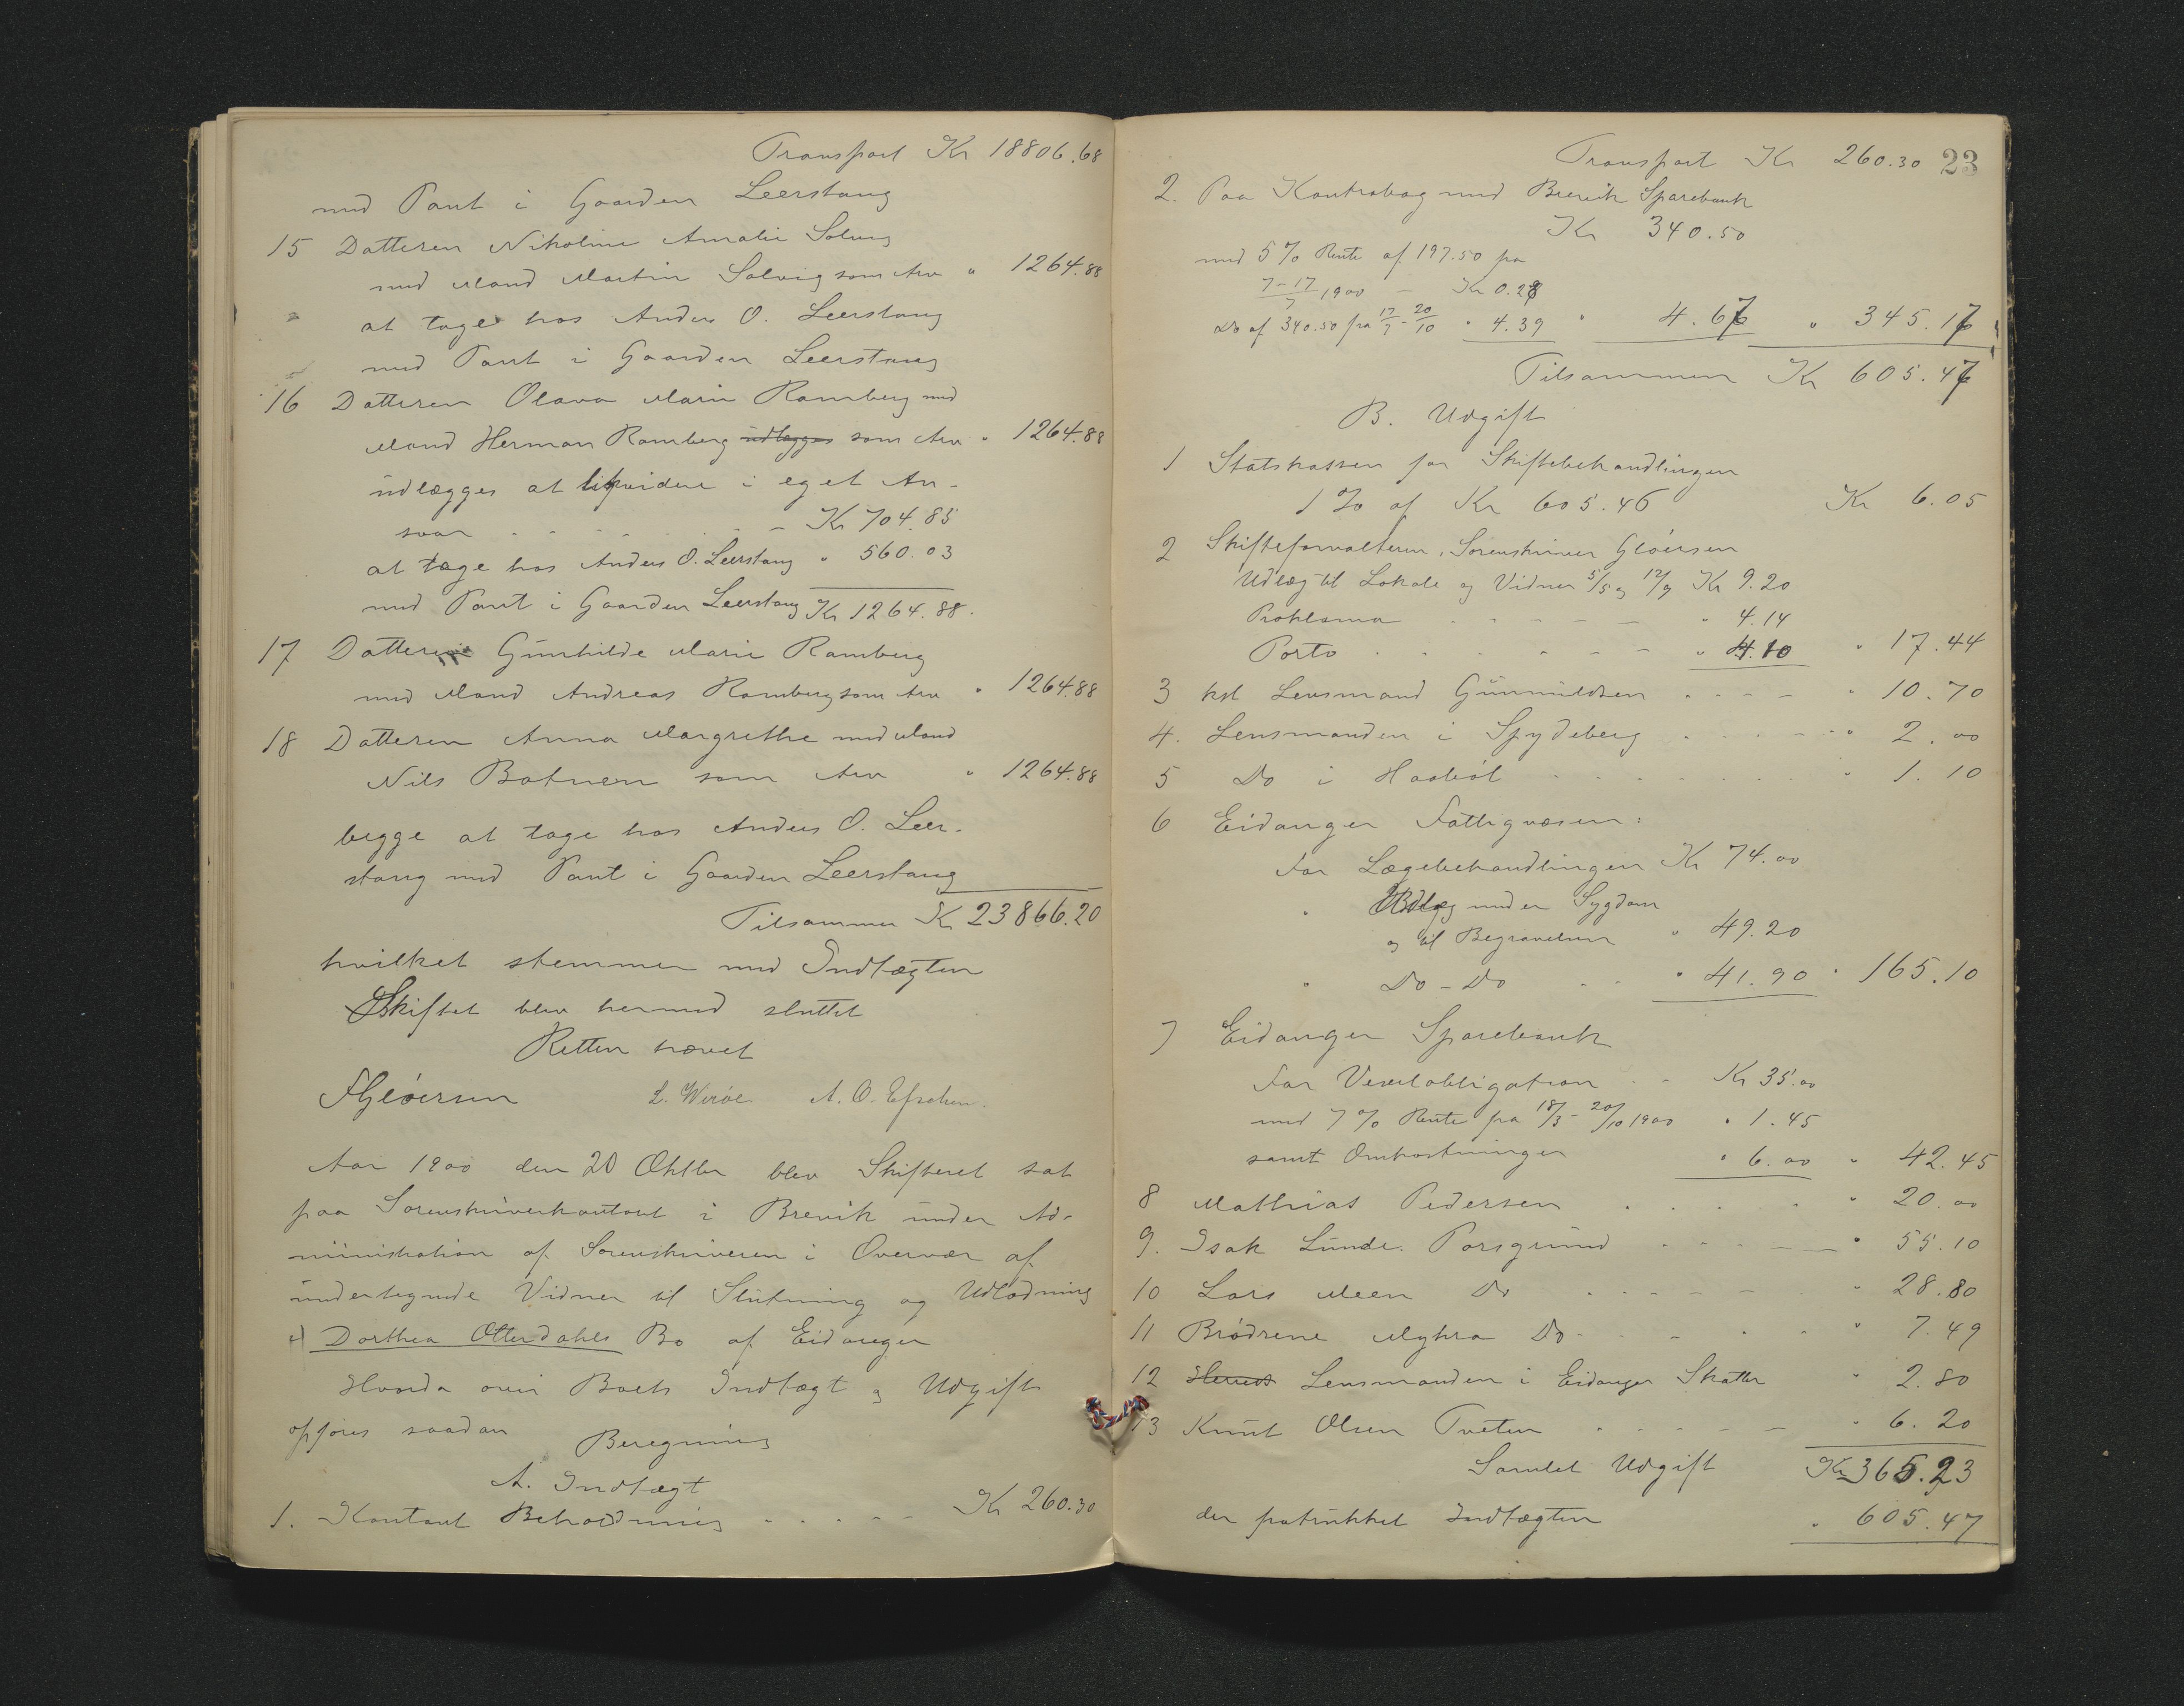 Transport Kr 18806.68
med Pant i Gaarden Leerstang
15 Datteren Nikoline Amalie Solvig
med Mand Martin Solvig som Arv " 1264.88
at tage hos Anders O. Leerstang
med Pant i Gaarden Leerstang
16 Datteren Olava Marie Ramberg med
Mand Herman Ramberg udlægges som Arv " 1264.88
udlægges at likvidere i eget An-
svar - - - - Kr 704.85
at tage hos Anders O. Leerstang " 560.03
med Pant i Gaarden Leerstang Kr 1264.88.
17 Datteren Gunhilde Marie Ramberg
med Mand Andreas Ramberg som Arv " 1264.88
18 Datteren Anna Margrethe med Mand
Nils Botnen som Arv " 1264.88
begge at tage hos Anders O. Leer-
stang med Pant i Gaarden Leerstang
Tilsammen Kr 23866.20
hvilket stemmer med Indtægten
Skiftet blev hermed sluttet
Retten hævet
FGløersen L. Werøe A. O.
Aar 1900 den 20 Oktbr blev Skifteret sat
paa Sorenskriverkontoret i Brevik under Ad-
ministration af Sorenskriveren i Overvær af
undertegnede Vidner til Slutning og Udlodning
i Dorthea Otterdahls Bo af Eidanger
Hvorda over Boets Indtægt og Udgift
opgjøres saadan Beregning
A. Indtægt
1. Kontant Beholdning - - - - - Kr 260.30
Transport Kr 260.30 23
2. Paa Kontrabog med Brevik Sparebank
Kr 340.50
med 5 % Rente af 197.50 fra
7-17/7 1900 - Kr 0.28
Do af 340.50 fra 17/7 - 20/10 " 4.39 " 4.67 " 345.17
Tilsammen Kr 605.47
B. Udgift
1 Statskassen for Skiftebehandlingen
1 % af Kr 605.46 Kr 6.05
2 Skifteforvalteren, Sorenskriver Gløersen
Udlæg til Lokale og Vidner 5/5 og 12/9 Kr 9.20
Proklama - - - - - " 4.14
Porto - - - - - " 4.10 " 17.44
3 kst Lensmand Gunnuldsen - - - - " 10.70
4. Lensmanden i Spydeberg - - - - " 2.00
5 Do i Haabøl - - - - " 1.10
6 Eidanger Fattigvæsen:
For Lægebehandlingen Kr 74.00
" Udlæg under Sygdom
og til Begravelsen " 49.20
" Do - Do - - " 41.90 " 165.10
7 Eidanger Sparebank
For Vexelobligation - - Kr 35.00
med 7 % Rente fra 18/3 - 20/10 1900 " 1.45
samt Omkostninger " 6.00 " 42.45
8 Mathias Pedersen - - - - " 20.00
9. Isak Lunde. Porsgrund - - - - " 55.10
10 Lars Meen Do - - - - - " 28.80
11 Brødrene Myhra Do - - - - " 7.49
12 Lensmanden i Eidanger Skatter " 2.80
13 Knut Olsen Tveten - - - - - " 6.20
Samlet Udgift Kr 365.23
der fratrukket Indtægten " 605.47